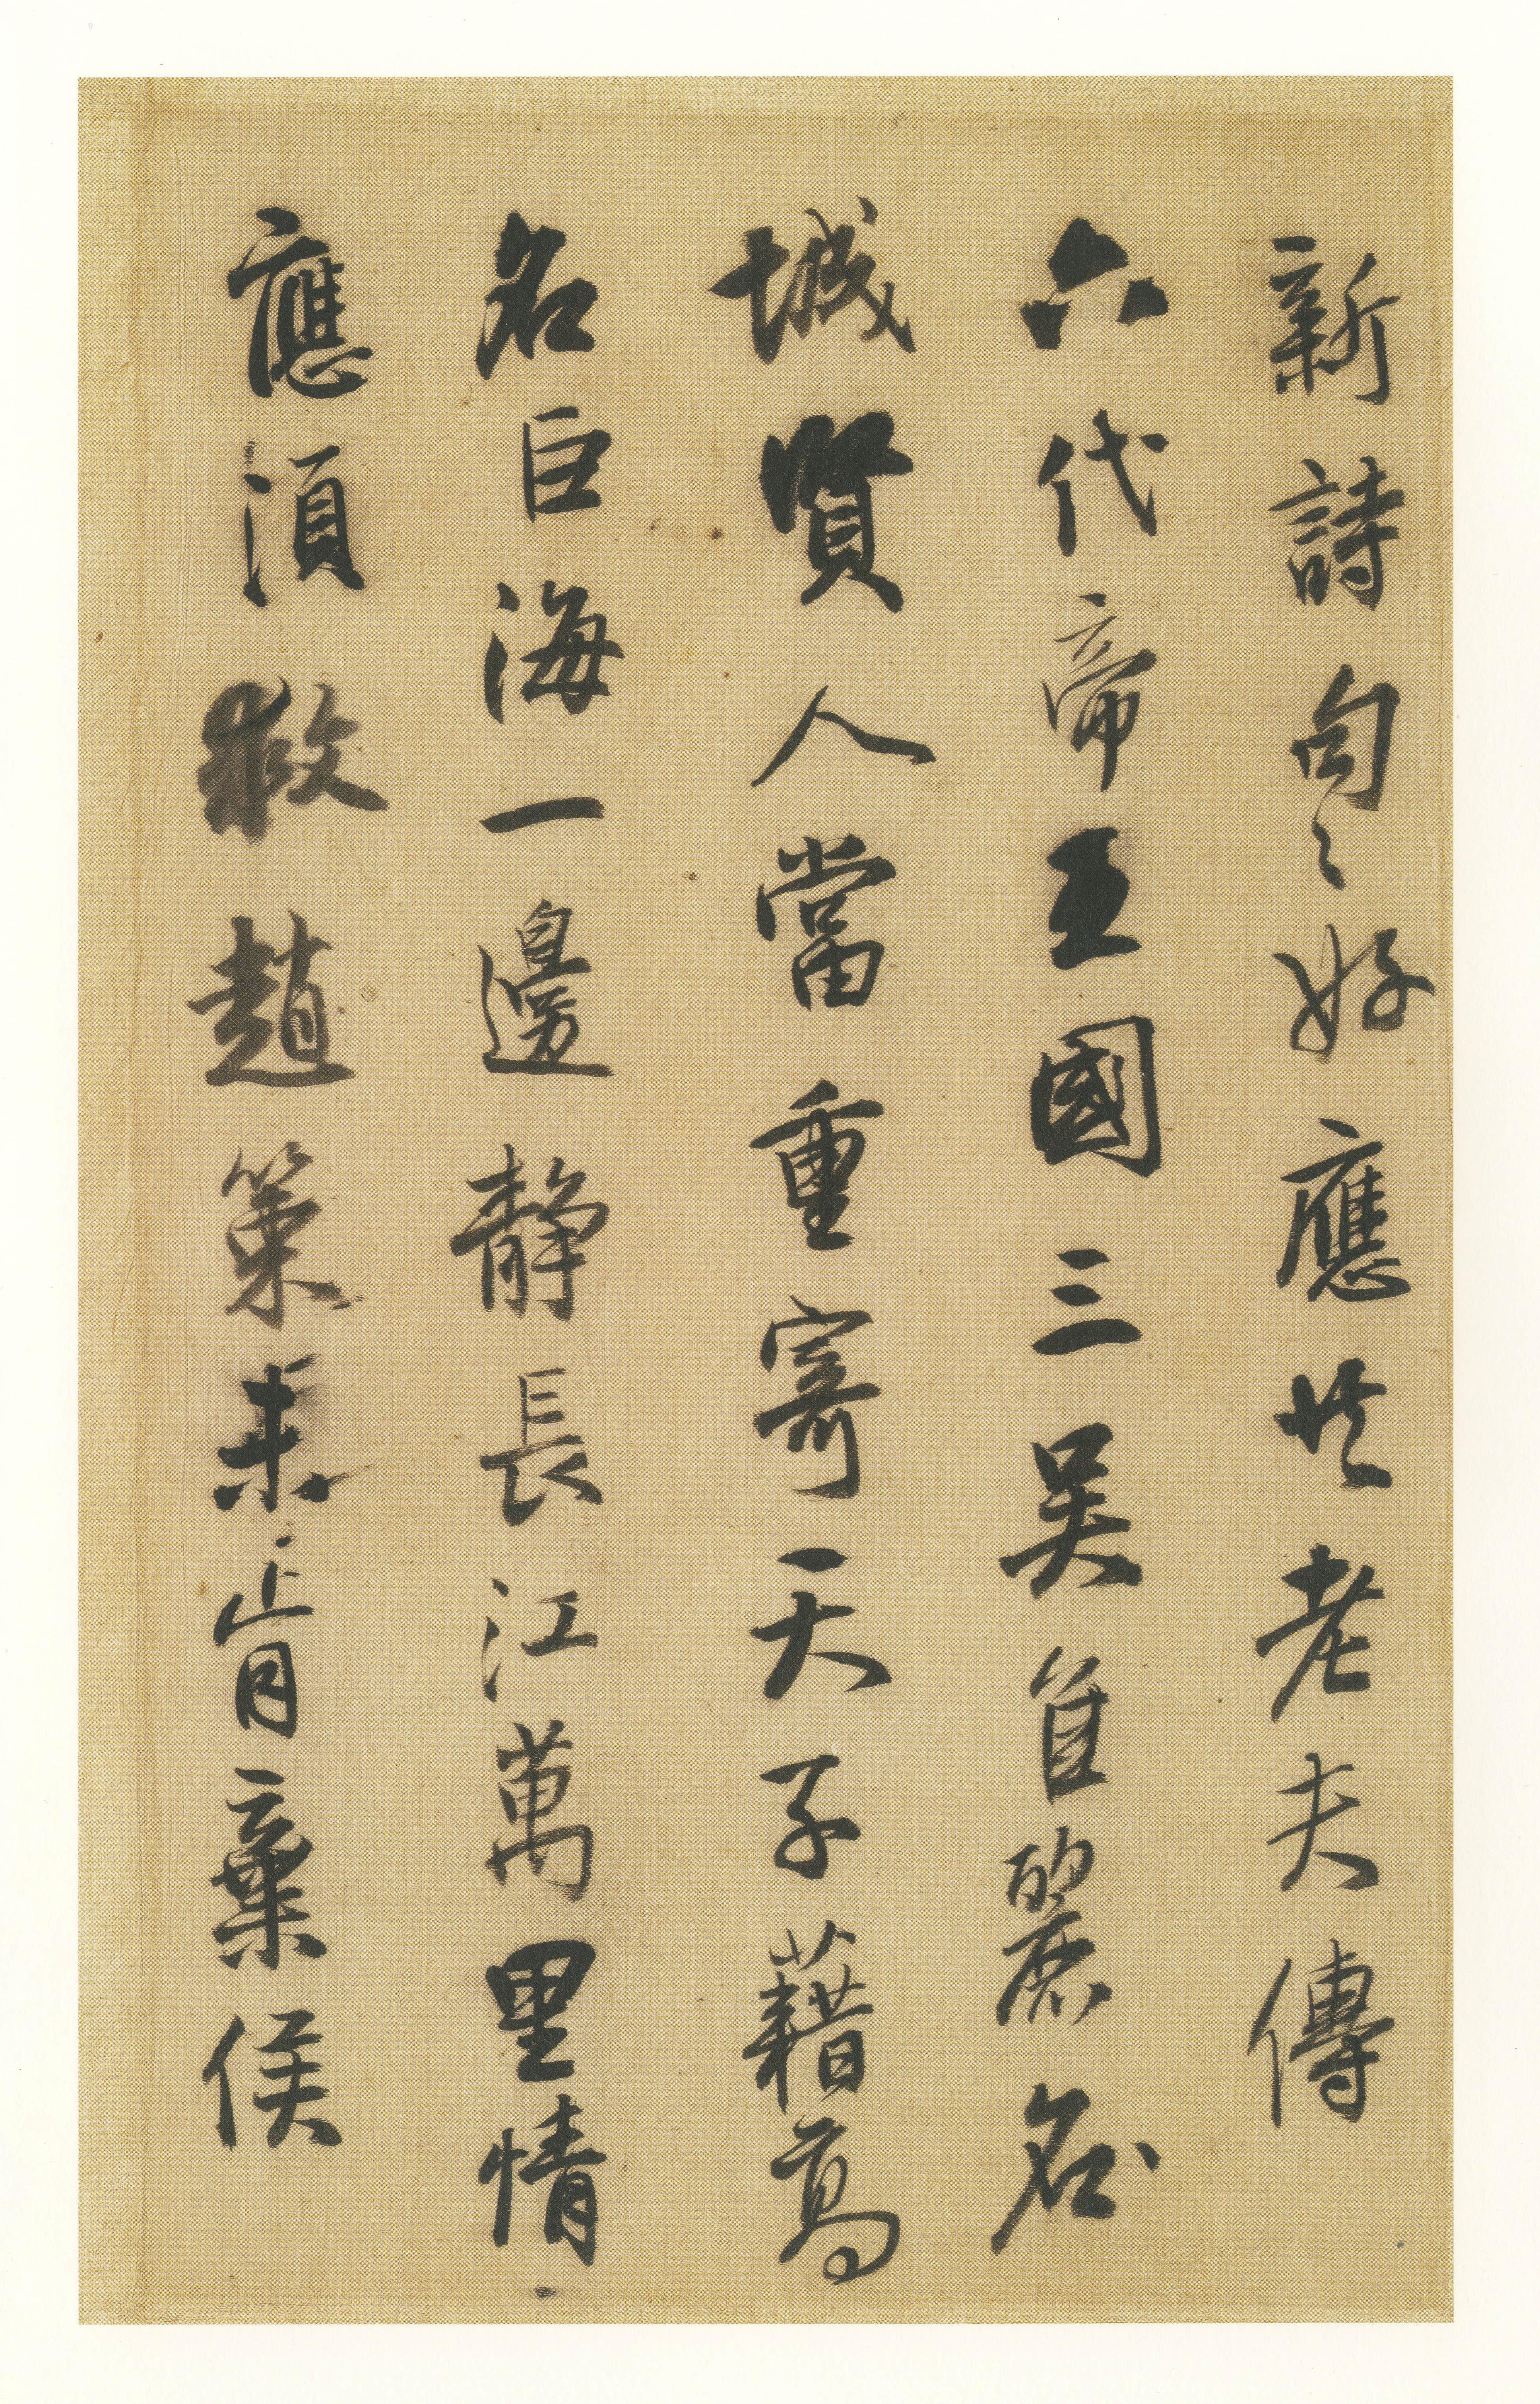 新詩句〻好應老夫傳
六代帝王國三吳佳麗名
城賢人當重寄天子藉高
名巨海一邊靜長江萬里情
應須救趙策未肯棄侯